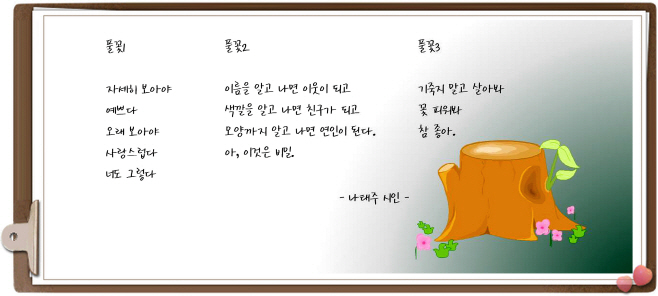 풀꽃1
자세히 보아야
예쁘다
오래 보아야
사랑스럽다
너도 그렇다
풀꽃2
이름을 알고 나면 이웃이 되고
색깔을 알고 나면 친구가 되고
모양까지 알고 나면 연인이 된다.
아, 이것은 비밀.
풀꽃3
기죽지 말고 살아봐
꽃 피워봐
참 좋아.
- 나태주 시인 -